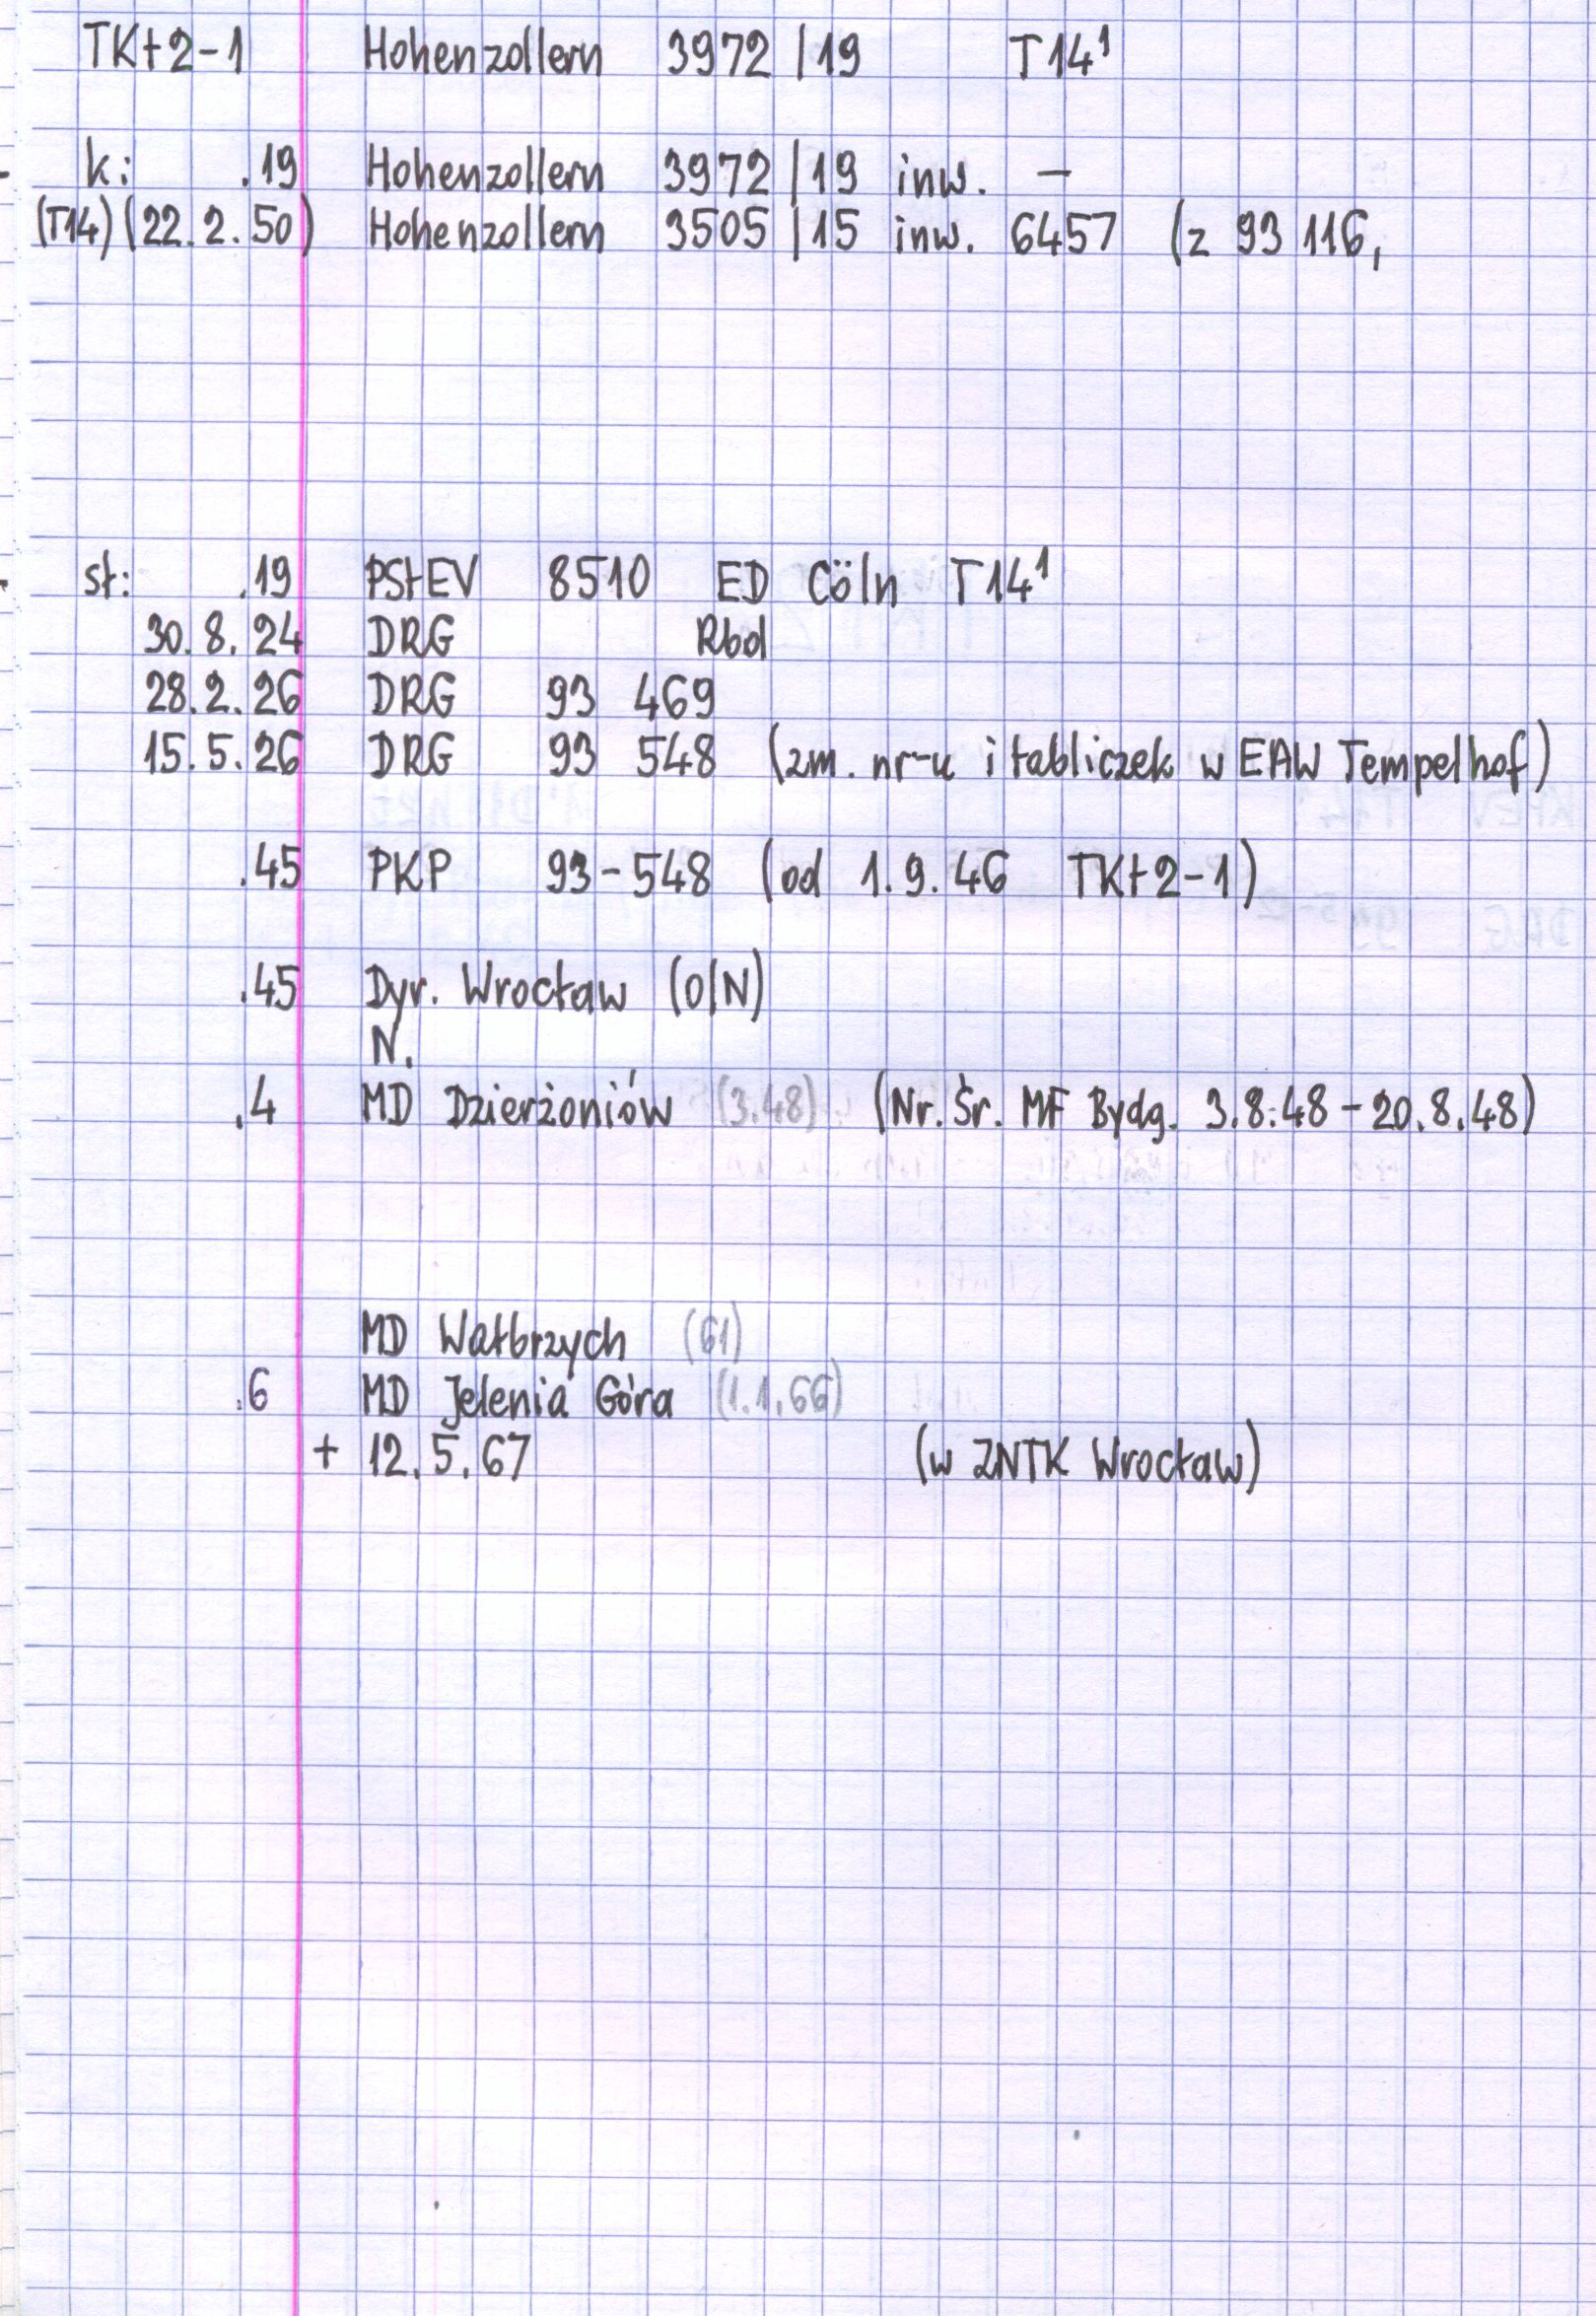 TKt2-1 Hohenzollern 3972/19 T14¹
k: .19 Hohenzollern 3972/19 inw. —
(T14) (22.2.50) Hohenzollern 3505/15 inw. 6457 (z 93 116,
st: .19 PStEV 8510 ED Cöln T14¹
30.8.24 DRG Rbd
28.2.26 DRG 93 469
15.5.26 DRG 93 548 (zm. nr-u i tabliczek w EAW Tempelhof)
.45 PKP 93-548 (od 1.9.46 TKt2-1)
.45 Dyr. Wrocław (O/N)
N.
.4 MD Dzierżoniów (3.48) (Nr. Śr. MF Bydg. 3.8.48 - 20.8.48)
MD Wałbrzych (61)
.6 MD Jelenia Góra (1.1.66)
+ 12.5.67 (w ZNTK Wrocław)